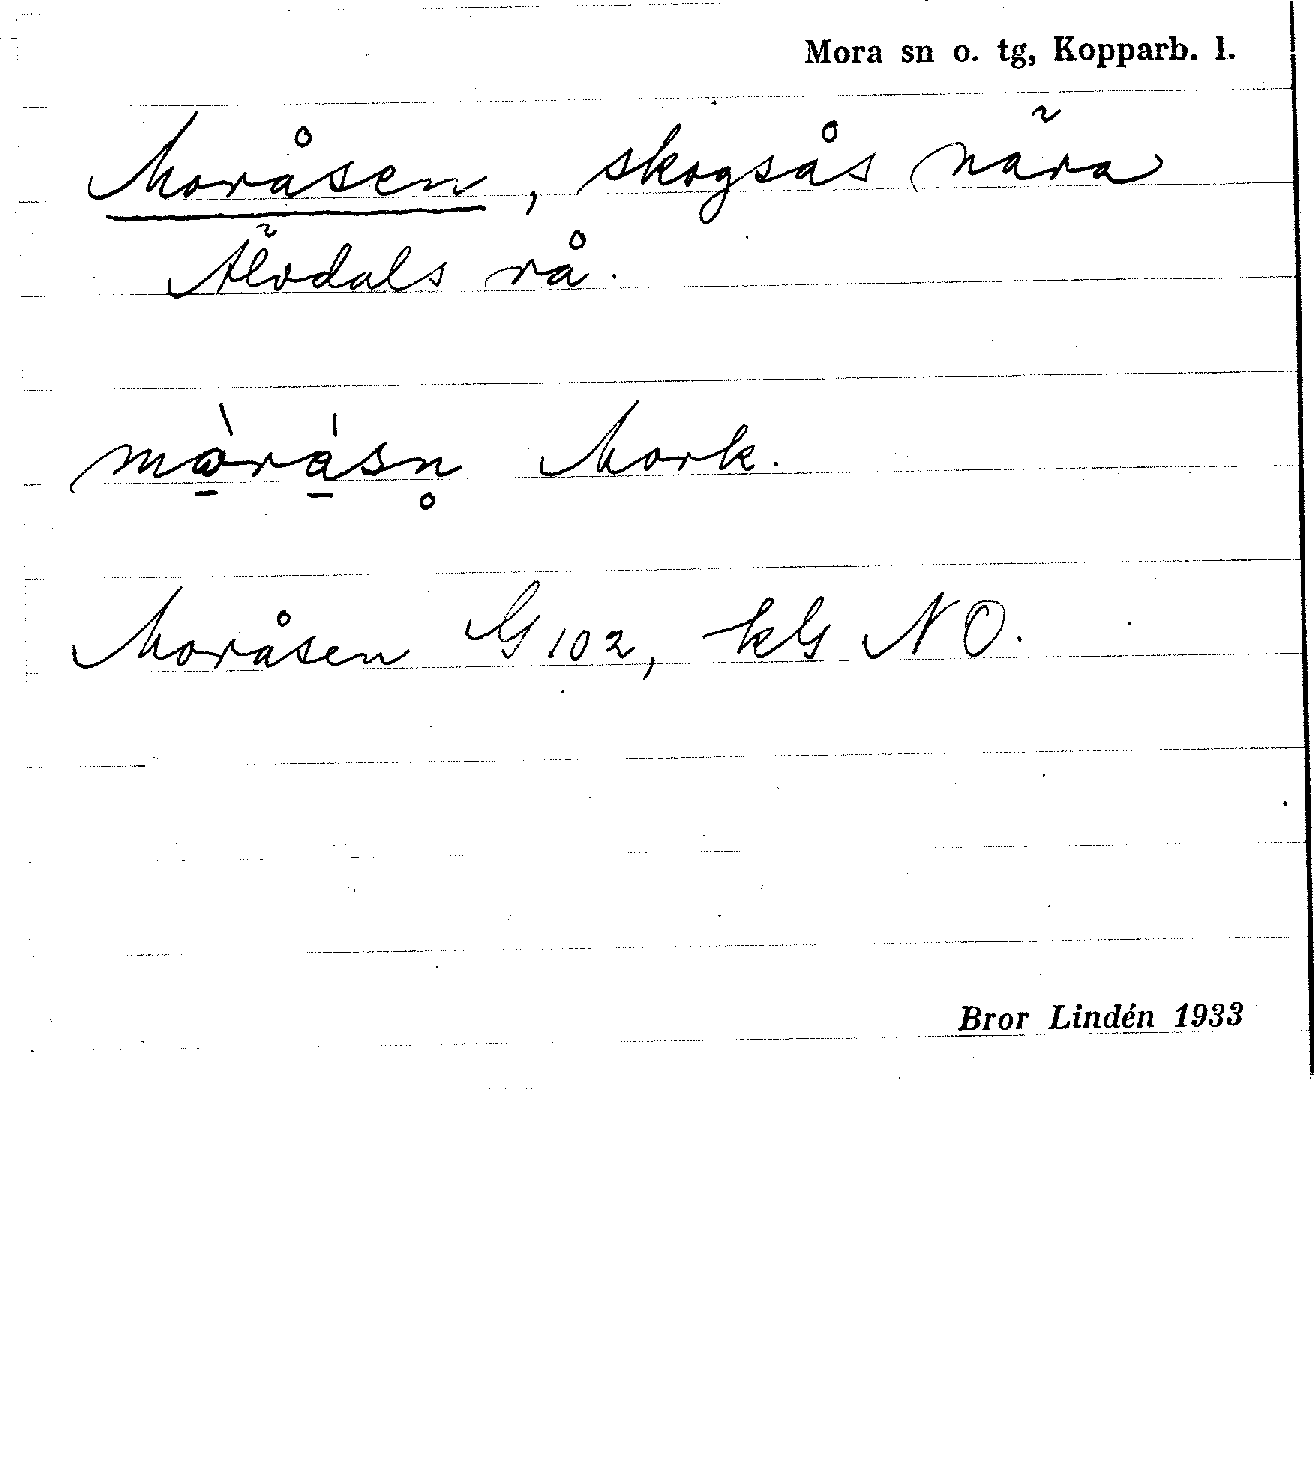 Mora sn o. tg, Kopparb. l.
Moråsen, skogsås nära
Älvdals rå.
mò̱rásn̥ Mork.
Moråsen G 102, kG NO.
Bror Lindén 1933